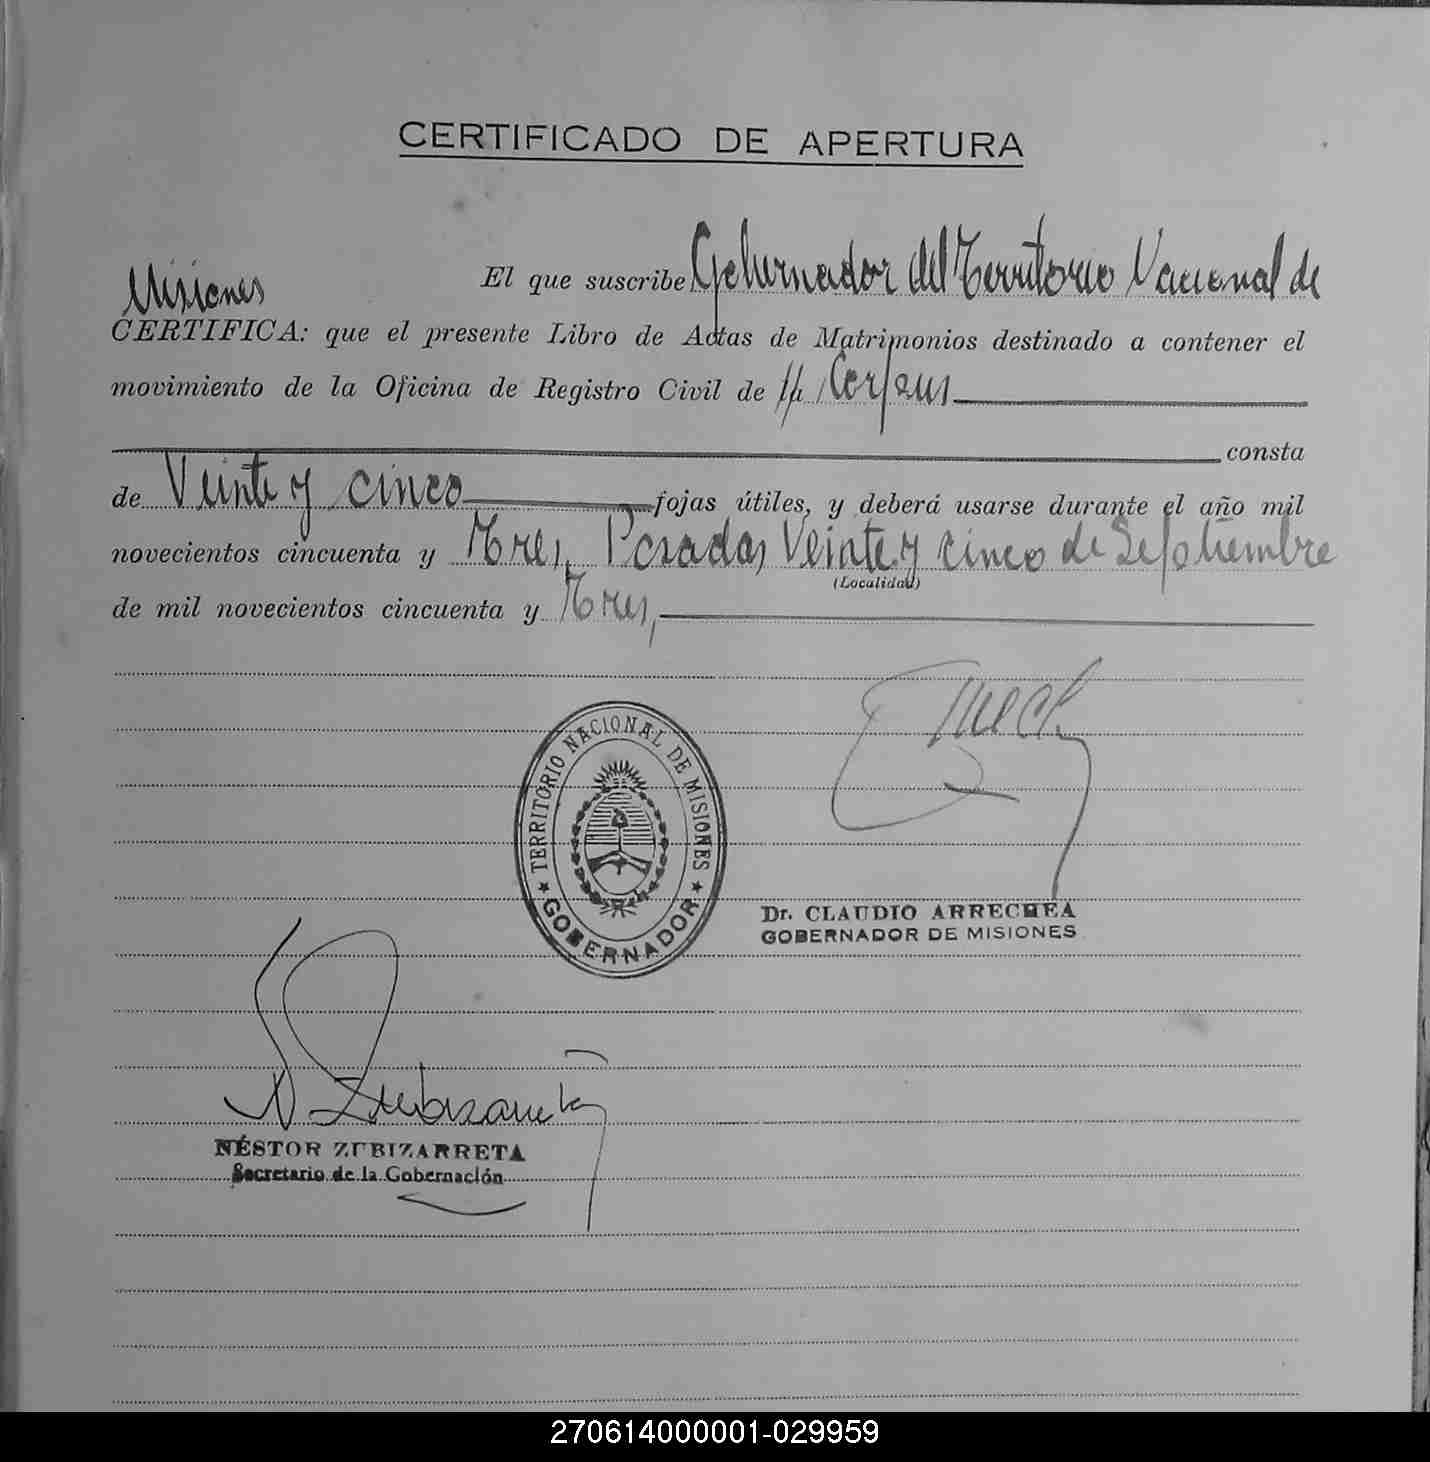 CERTIFICADO DE APERTURA
El que suscribe Gobernador del Territorio Nacional de
Misiones
CERTIFICA: que el presente Libro de Actas de Matrimonios destinado a contener el
movimiento de la Oficina de Registro Civil de Corpus
consta
de Veinte y cinco fojas útiles, y deberá usarse durante el año mil
novecientos cincuenta y Tres, Posadas, Veinte y cinco de Septiembre
(Localidad)
de mil novecientos cincuenta y Tres,
★ TERRITORIO NACIONAL DE MISIONES ★
GOBERNADOR
Dr. CLAUDIO ARRECHEA
GOBERNADOR DE MISIONES
N Zubizarreta
NÉSTOR ZUBIZARRETA
Secretario de la Gobernación
270614000001-029959